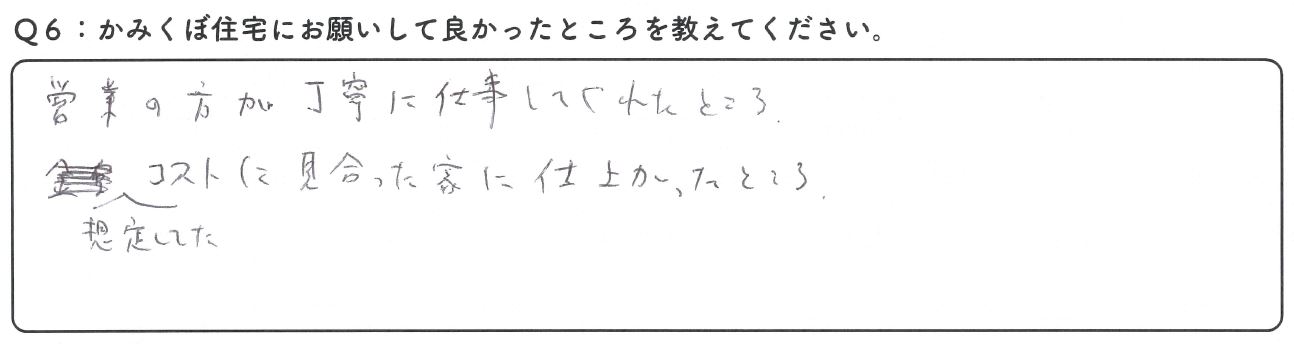 Q6：かみくぼ住宅にお願いして良かったところを教えてください。
営業の方が丁寧に仕事してくれたところ.
想定してたコストに見合った家に仕上がったところ.